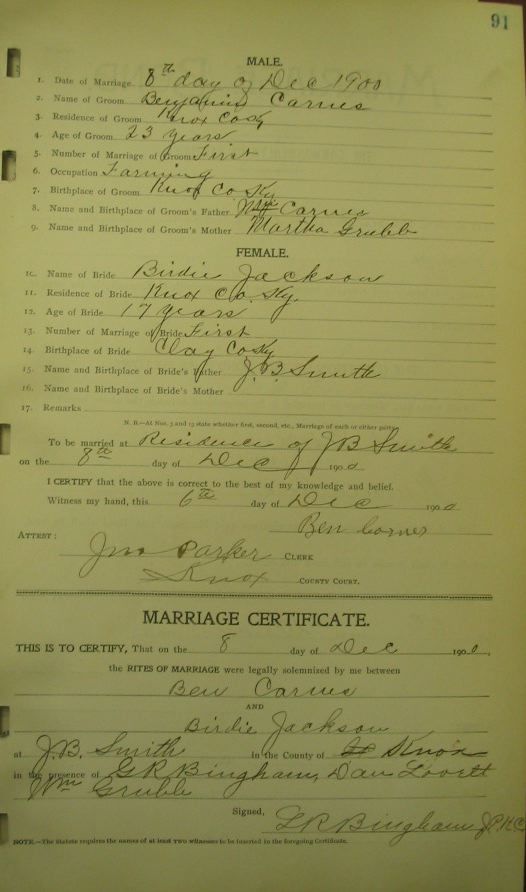 91
MALE.
1. Date of Marriage 8th day of Dec 1900
2. Name of Groom Benjamin Carnes
3. Residence of Groom Knox Co Ky
4. Age of Groom 23 years
5. Number of Marriage of Groom First
6. Occupation Farming
7. Birthplace of Groom Knox Co Ky
8. Name and Birthplace of Groom's Father Wm Carnes
9. Name and Birthplace of Groom's Mother Martha Grubb
FEMALE.
10. Name of Bride Birdie Jackson
11. Residence of Bride Knox Co. Ky.
12. Age of Bride 17 years
13. Number of Marriage of Bride First
14. Birthplace of Bride Clay Co Ky
15. Name and Birthplace of Bride's Father J.B. Smith
16. Name and Birthplace of Bride's Mother
17. Remarks
N. B.—At Nos. 5 and 13 state whether first, second, etc., Marriage of each or either party.
To be married at Residence of JB Smith
on the 8th day of Dec 1900
I CERTIFY that the above is correct to the best of my knowledge and belief.
Witness my hand, this 6th day of Dec 1900
Ben Corner
ATTEST:
Jno Parker CLERK
Knox COUNTY COURT.
MARRIAGE CERTIFICATE.
THIS IS TO CERTIFY, That on the 8 day of Dec 1900,
the RITES OF MARRIAGE were legally solemnized by me between
Ben Carnes
AND
Birdie Jackson
at J.B. Smith in the County of Knox
in the presence of G R Bingham, Dan Lovett
Wm Grubb
Signed, G R Bingham J.P.K.C.
NOTE.—The Statute requires the names of at least TWO witnesses to be inserted in the foregoing Certificate.